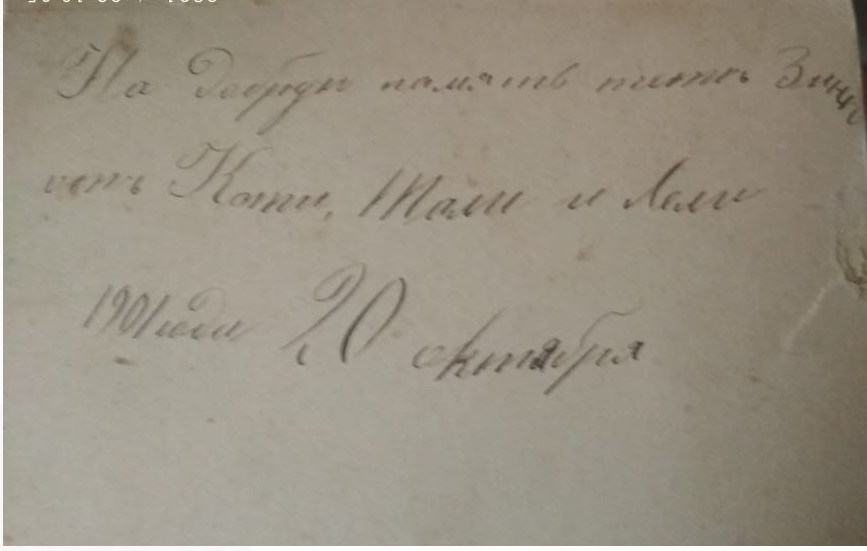 На добрую память тетѣ Зинѣ
отъ Кати, Тали и Лели
1901 года 20 октября